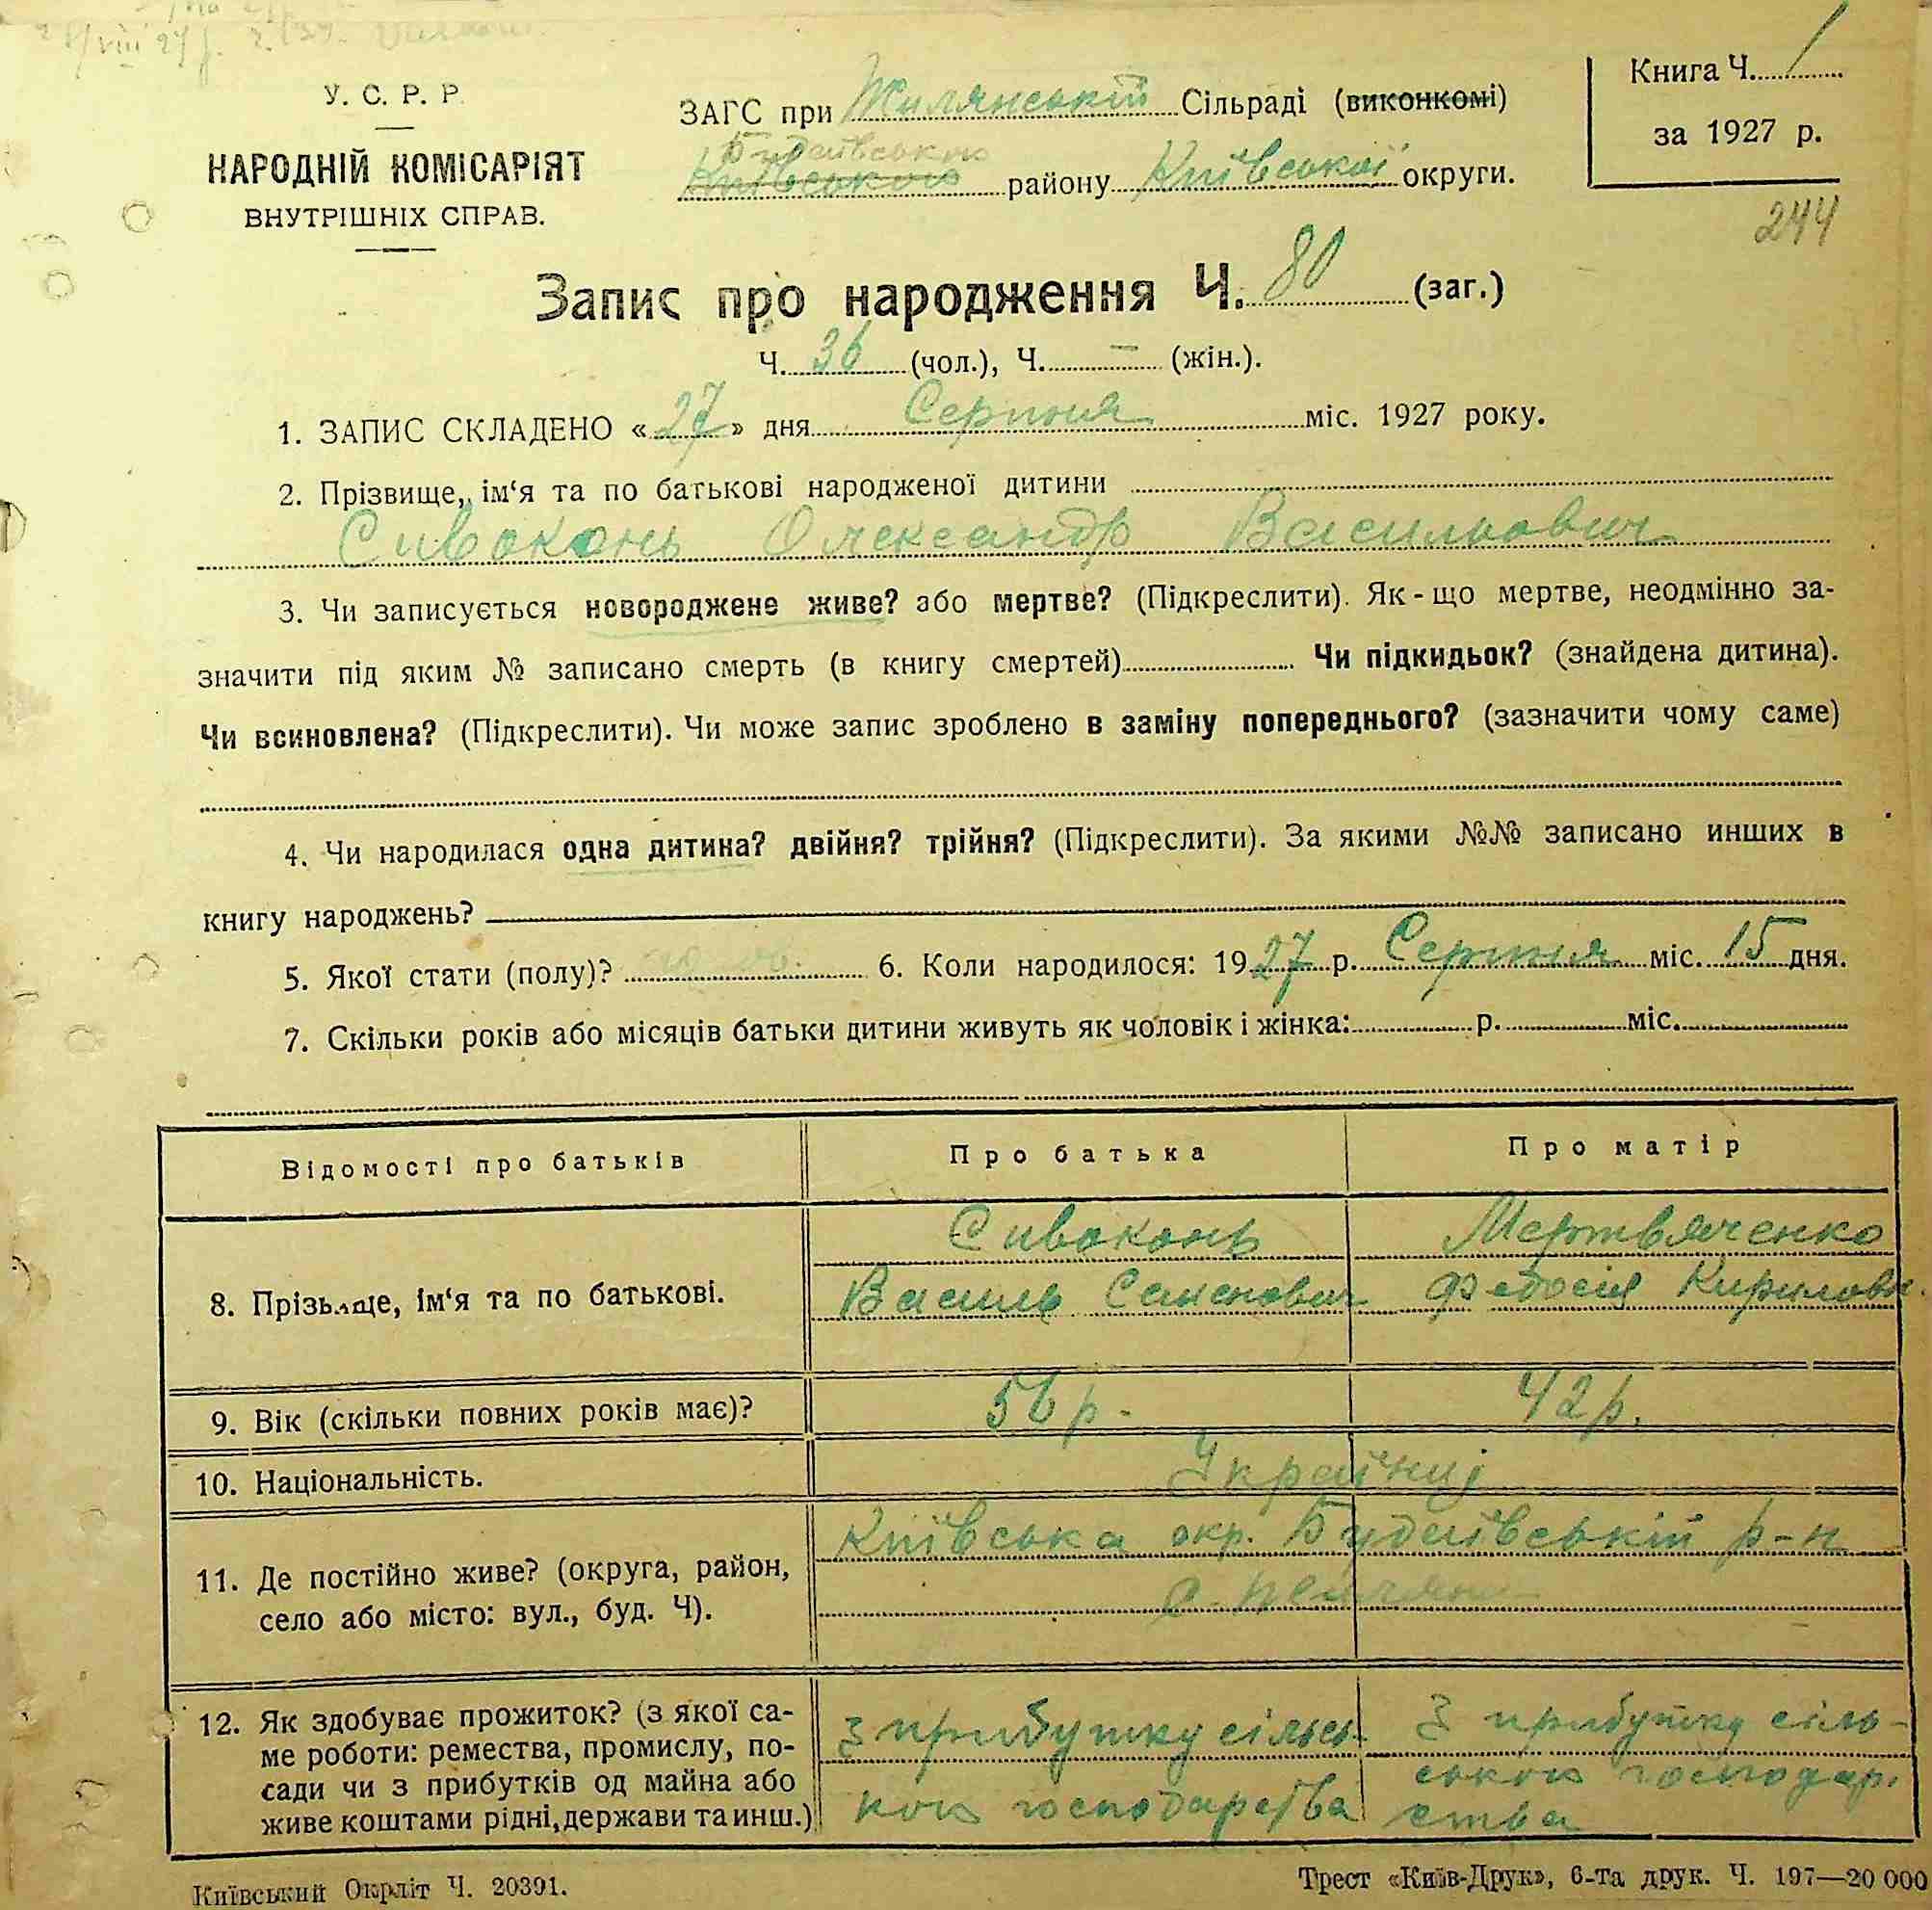 У. С. Р. Р.
НАРОДНІЙ КОМІСАРІЯТ
ВНУТРІШНІХ СПРАВ.
ЗАГС при Жилянській Сільраді (виконкомі)
Будаївського
Київського району Київської округи.
Книга Ч. 1
за 1927 р.
244
Запис про народження Ч. 80 (заг.)
Ч. 36 (чол.), Ч. — (жін.).
1. ЗАПИС СКЛАДЕНО «27» дня Серпня міс. 1927 року.
2. Прізвище, ім‘я та по батькові народженої дитини
Сивоконь Олександр Васильович
3. Чи записується новороджене живе? або мертве? (Підкреслити). Як-що мертве, неодмінно за-
значити під яким № записано смерть (в книгу смертей) Чи підкидьок? (знайдена дитина).
Чи всиновлена? (Підкреслити). Чи може запис зроблено в заміну попереднього? (зазначити чому саме)
4. Чи народилася одна дитина? двійня? трійня? (Підкреслити). За якими №№ записано инших в
книгу народжень?
5. Якої стати (полу)? 6. Коли народилося: 1927 р. Серпня міс. 15 дня.
7. Скільки років або місяців батьки дитини живуть як чоловік і жінка: р. міс.
Відомості про батьків Про батька Про матір
Сивоконь Мертвяченко
8. Прізвище, ім‘я та по батькові. Василь Семенович Федосія Кириловн.
9. Вік (скільки повних років має)? 56 р. 42 р.
10. Національність. Українці
Київська окр. Будаївській р-н
11. Де постійно живе? (округа, район,
село або місто: вул., буд. Ч).
с.
12. Як здобуває прожиток? (з якої са-
ме роботи: ремества, промислу, по-
сади чи з прибутків од майна або
живе коштами рідні, держави та инш.)
з прибутку сільсь-
кого господарства
З прибутку сіль-
ського господар.
ства
Київський Окрліт Ч. 20391.
Трест «Київ-Друк», 6-та друк. Ч. 197—20 000